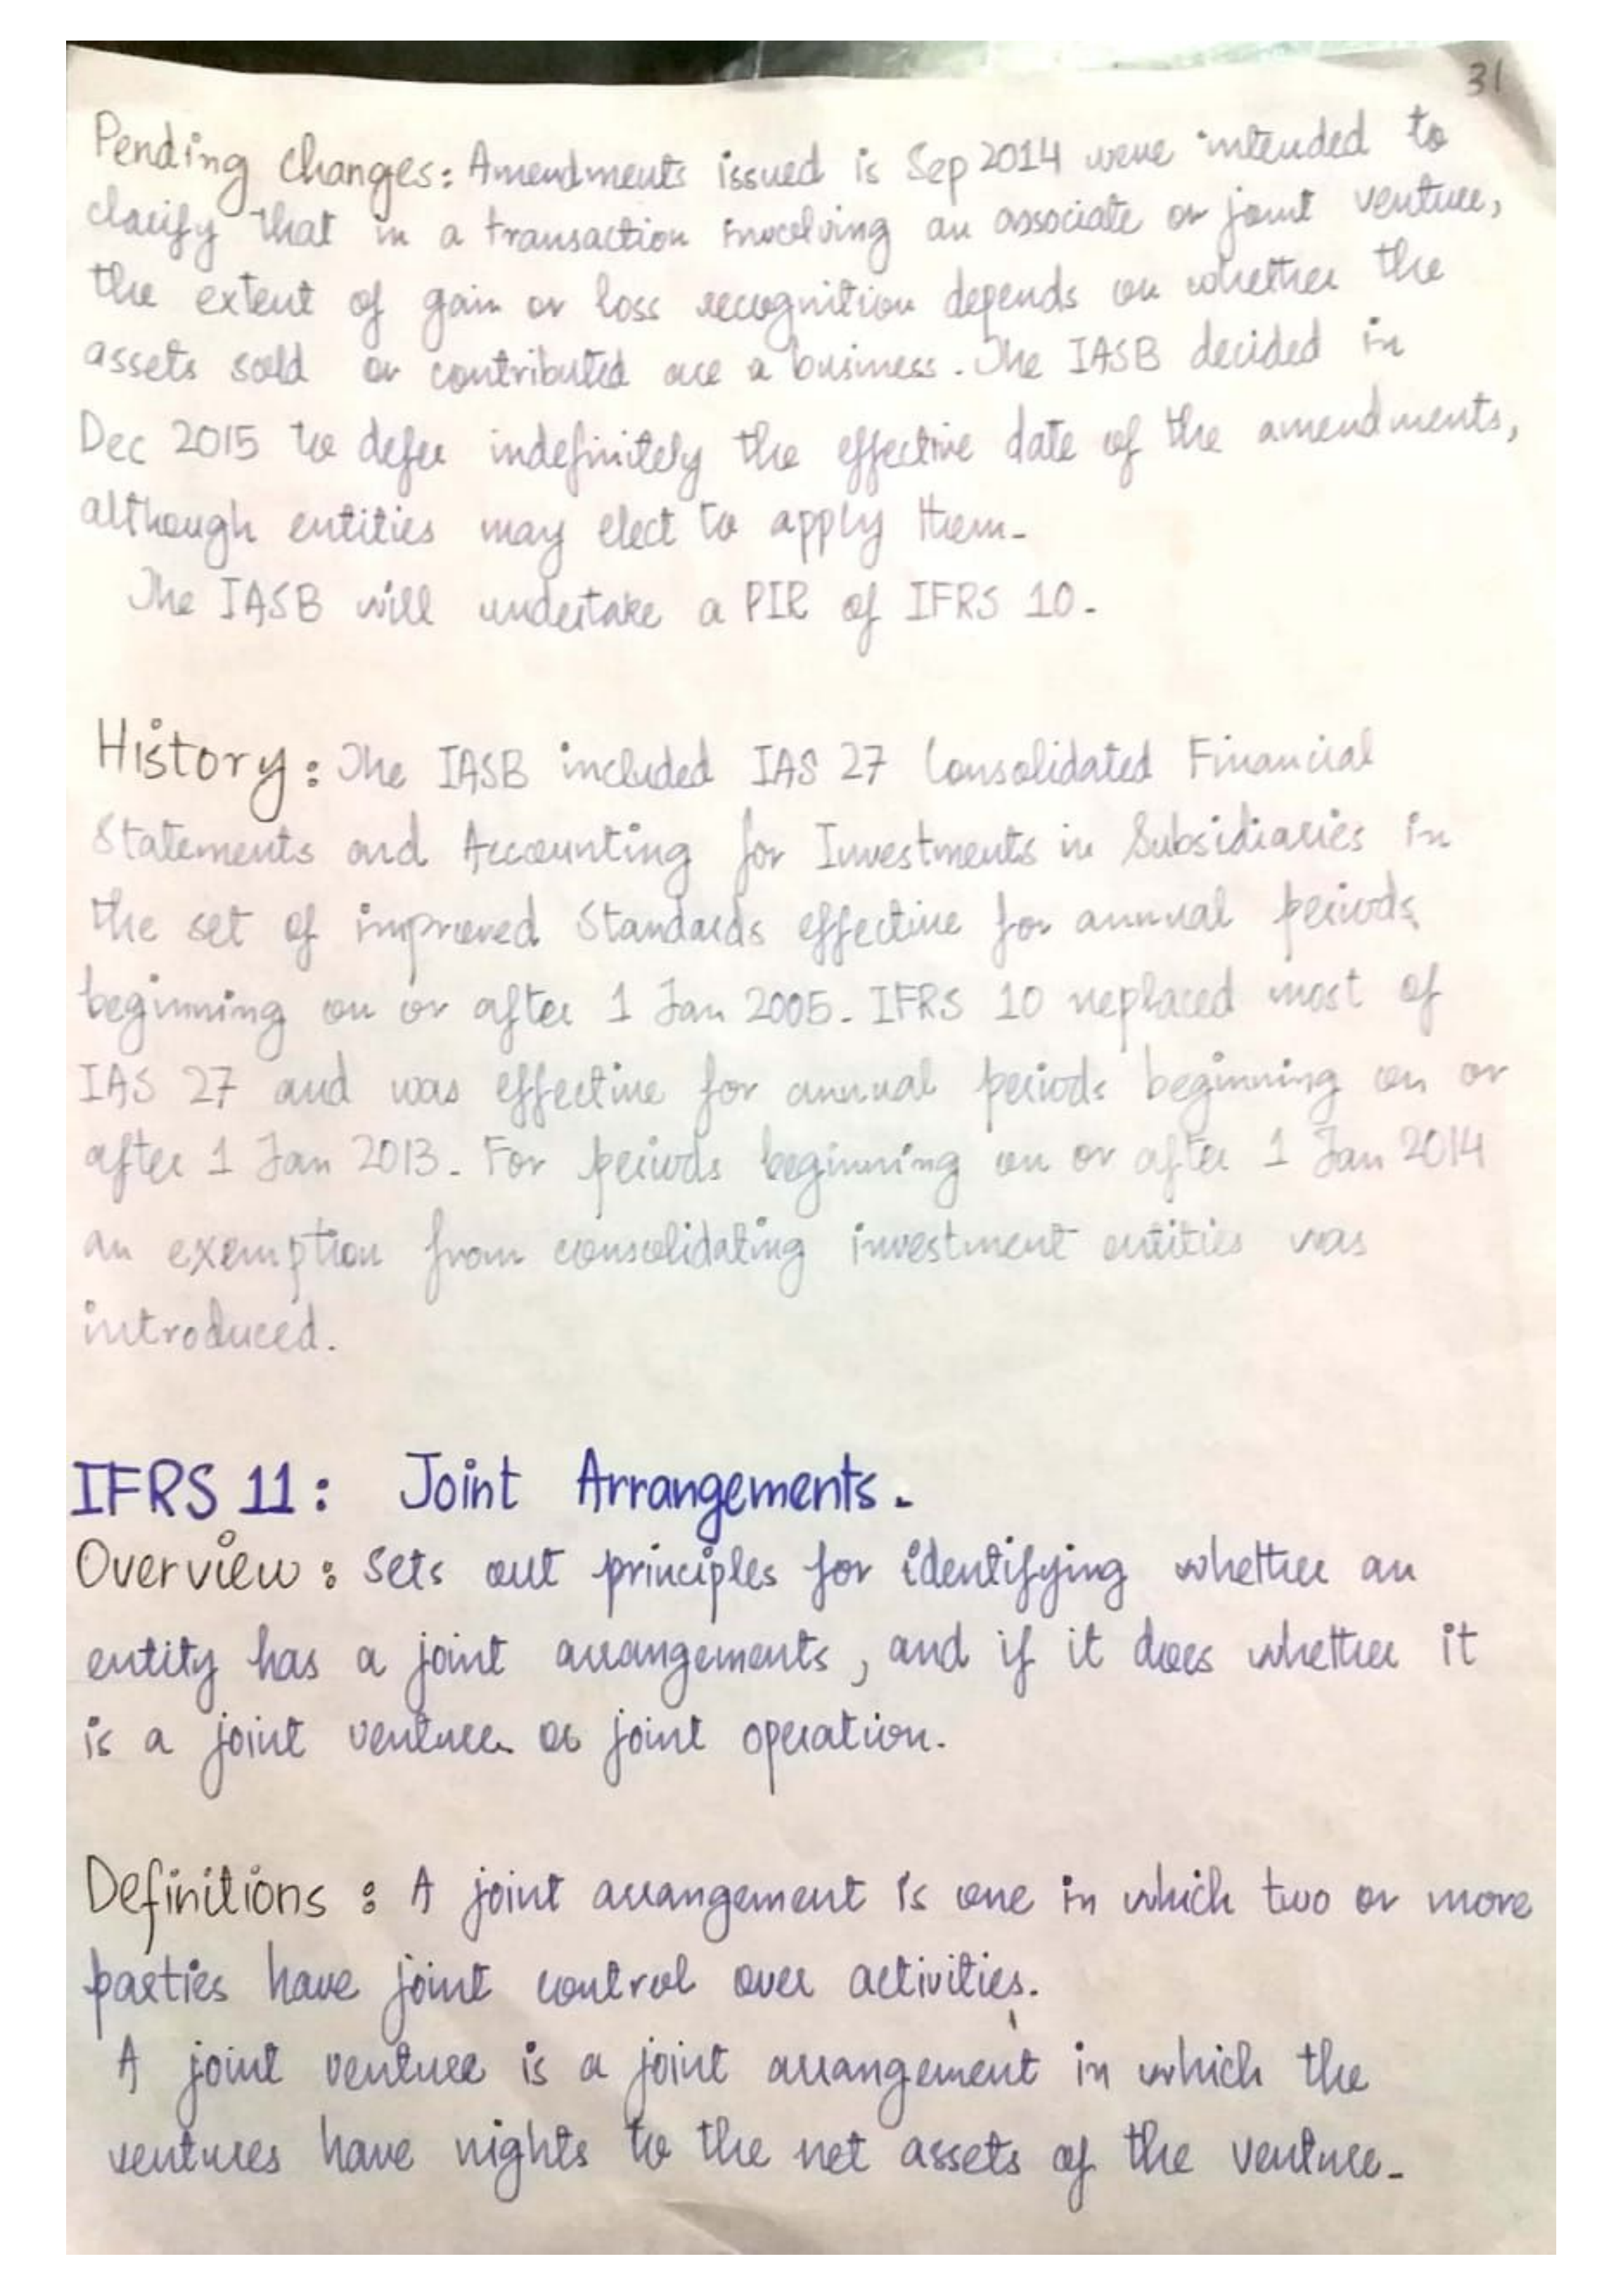 31
Pending changes: Amendments issued is Sep 2014 were intended to
clarify that in a transaction involving an associate or joint venture,
the extent of gain or loss recognition depends on whether the
assets sold or contributed are a business. The IASB decided in
Dec 2015 to defer indefinitely the effective date of the amendments,
although entities may elect to apply them.
The IASB will undertake a PIR of IFRS 10.
History: The IASB included IAS 27 Consolidated Financial
Statements and Accounting for Investments in Subsidiaries in
the set of improved Standards effective for annual periods
beginning on or after 1 Jan 2005. IFRS 10 replaced most of
IAS 27 and was effective for annual periods beginning on or
after 1 Jan 2013. For periods beginning on or after 1 Jan 2014
an exemption from consolidating investment entities was
introduced.
IFRS 11: Joint Arrangements.
Overview: Sets out principles for identifying whether an
entity has a joint arrangements, and if it does whether it
is a joint venture or joint operation.
Definitions: A joint arrangement is one in which two or more
parties have joint control over activities.
A joint venture is a joint arrangement in which the
ventures have rights to the net assets of the venture.